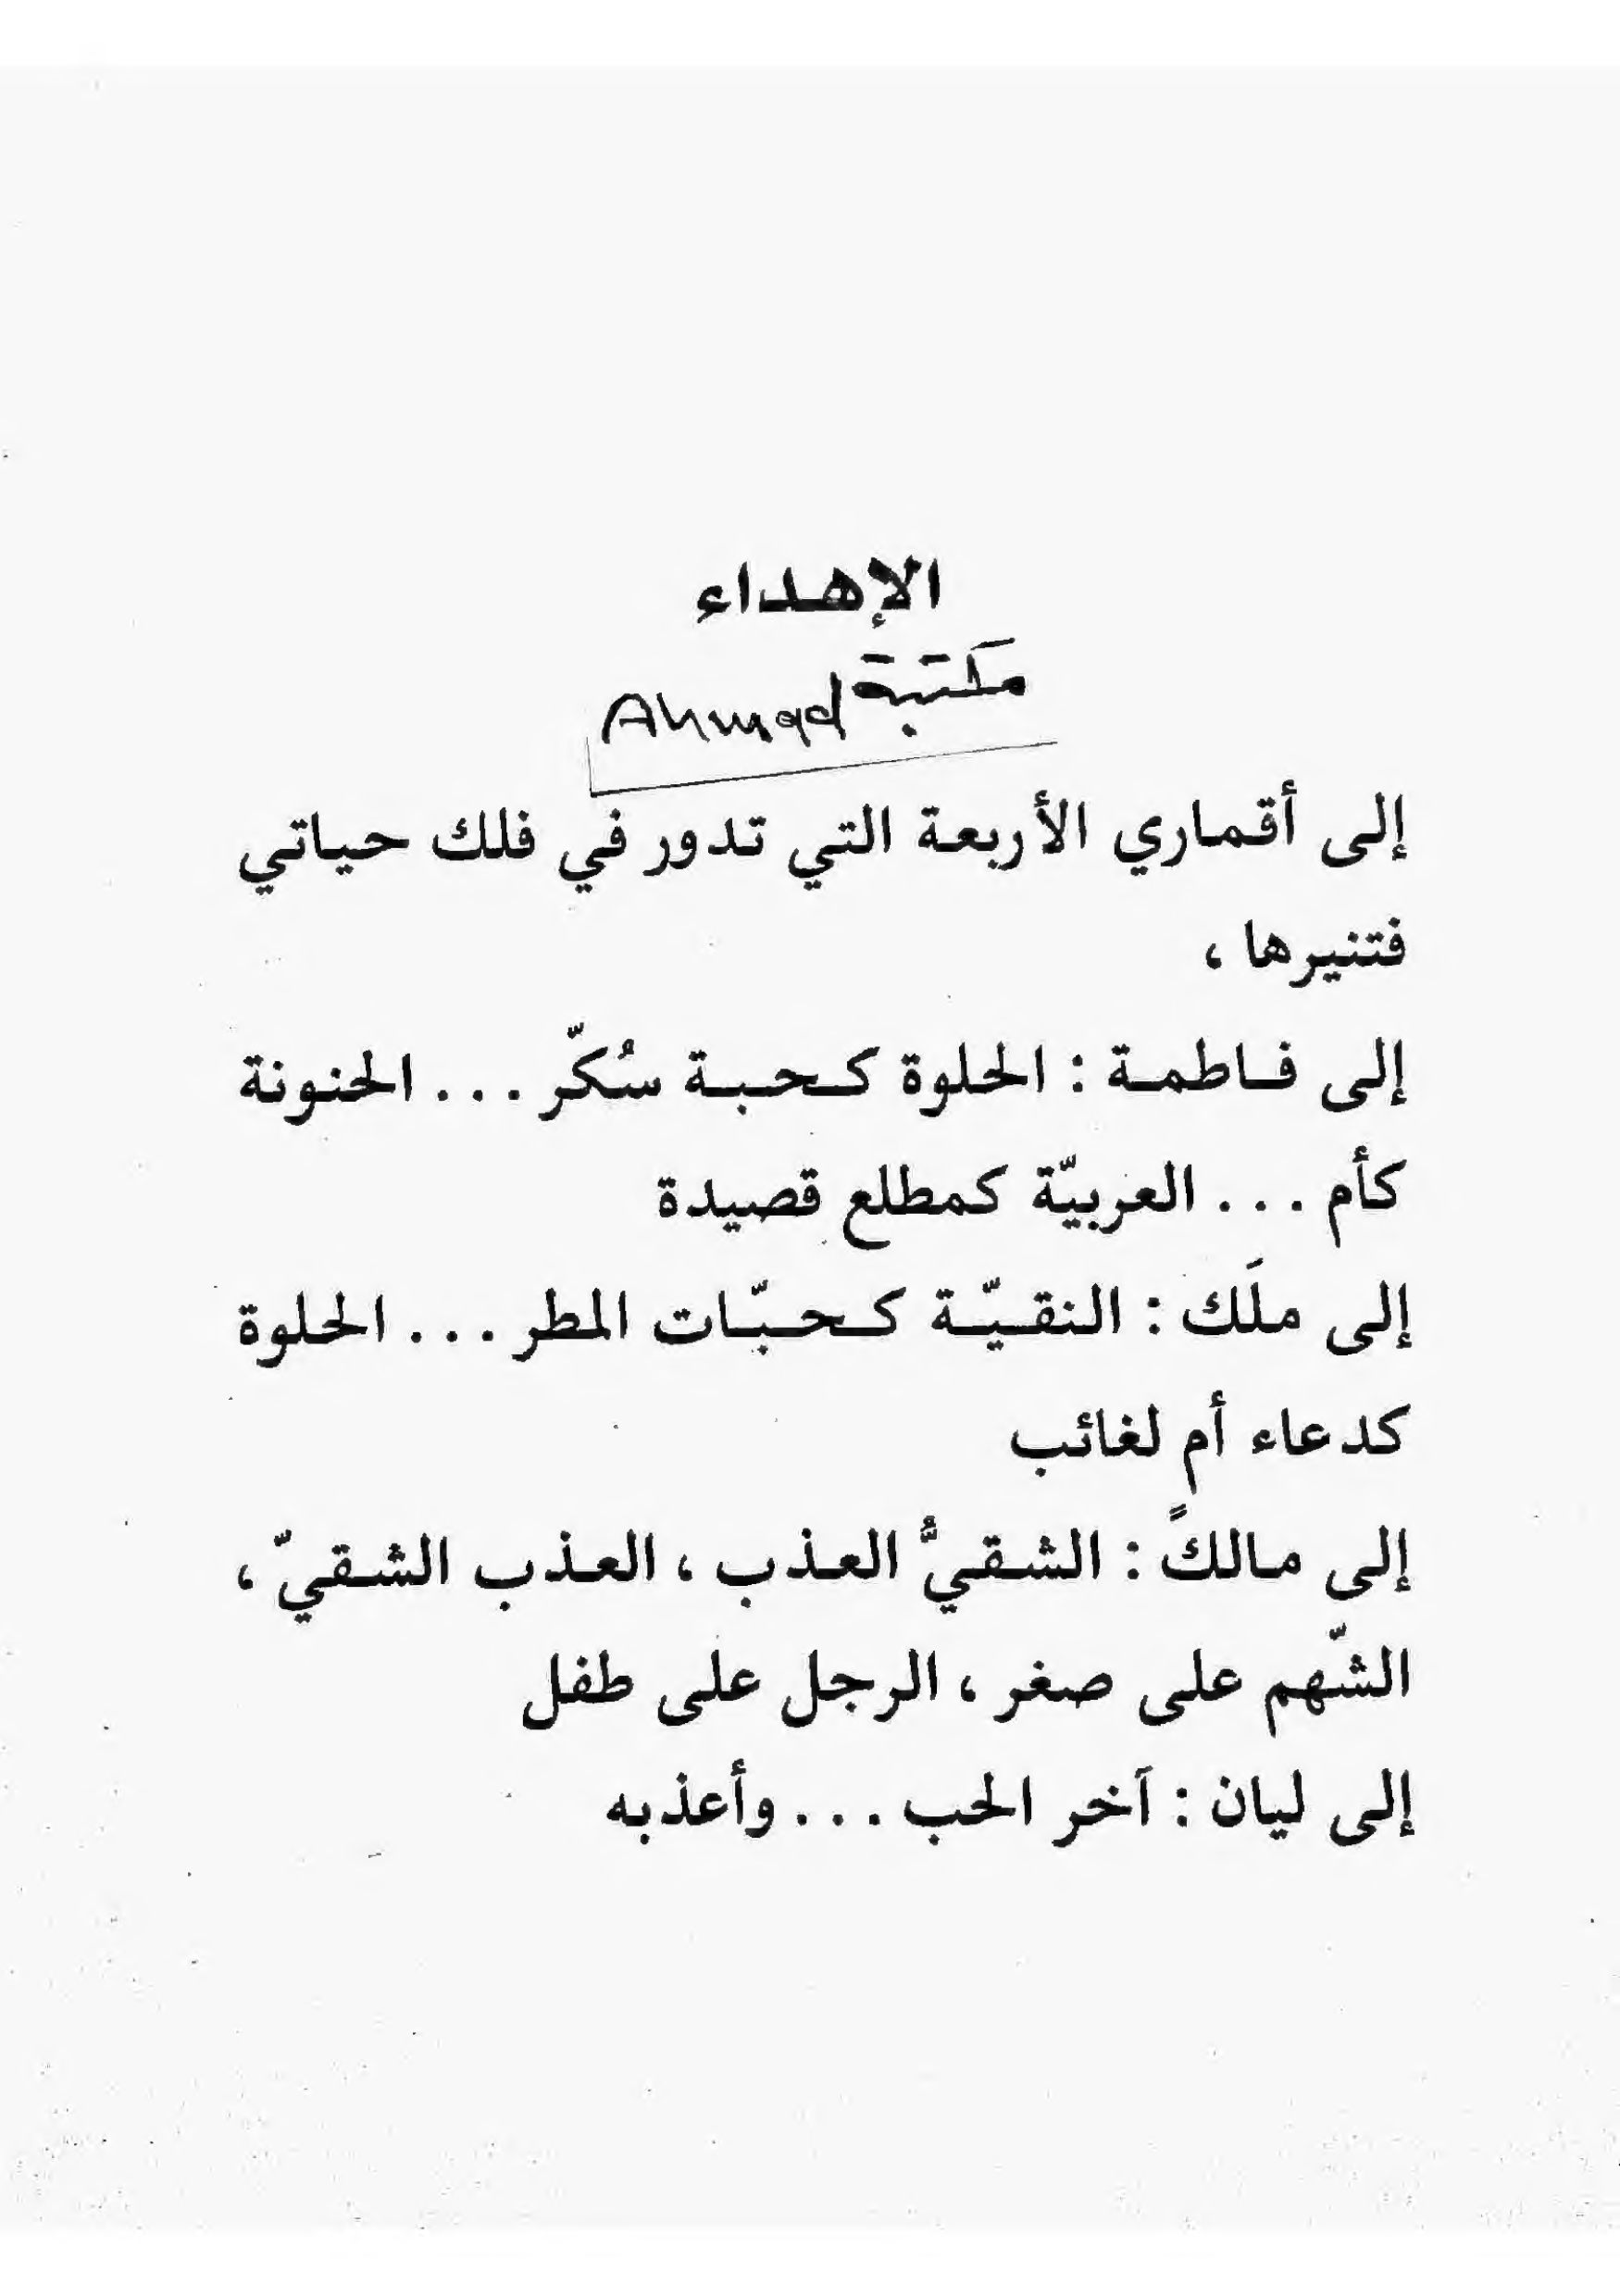 الإهداء
مكتبة Ahmad
إلى أقماري الأربعة التي تدور في فلك حياتي
فتنيرها ،
إلى فاطمة : الحلوة كحبة سُكّر . . . الحنونة
كأم . . . العربيّة كمطلع قصيدة
إلى ملَك : النقيّة كحبّات المطر . . . الحلوة
كدعاء أم لغائب
إلى مالكً : الشقيُّ العذب ، العذب الشقيّ ،
الشّهم على صغر ، الرجل على طفل
إلى ليان : آخر الحب . . . وأعذبه